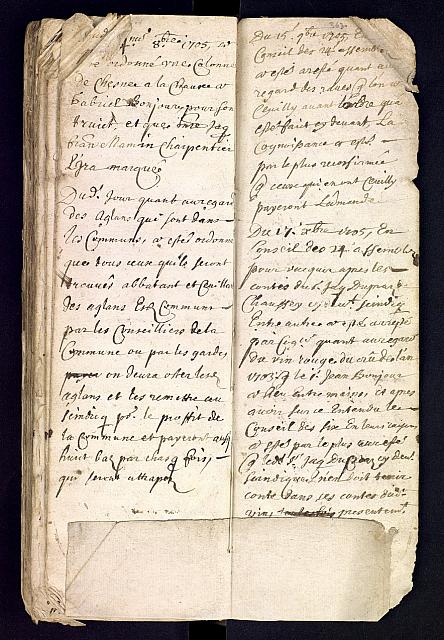 8bre 1705, a
ordonné une Calonne
de Chesne a la Chausea a
Gabriel Bonjour pour son
truict et que Jaq
Jean Mamin Charpentier
l'yra marquer
Du d. Jour quant au regard
des Aglans qui sont dans
les Communs, a estés ordonné
que tous ceux quils seront
treuvés abbatant et Cuillant
des aglans Es Communs
par les Conseilliers de la
Commune ou par les gardes
on devra oster les
aglans et les remettre au
scindicq pr. le proffit de
la Commune et payeront aussi
huict baz par chasq fois,
qui seront attrapez
Du 15. 9bre 1705, En
Conseil des 24 assemblé
a estés aresté quant au
regard des
Cœuilly avant l'ordre qui a
estés fait cy devant, La
Cognoissance a estés
par le plus reconfirmée
q ceux qui en ont Ceuilly
payeront Lamande
Du 17. xbre 1705, En
Conseil des 24 assemblé
pour vacquer apres les
contes du Sr. Jaq Dupraz
Chaussey scindicq
Entre autre a estés arresté
par quant au regard
du vin rouge du cru de lan
1705 q le Sr. Jean Bonjour
a Heu Entre mains, et apres
avoir sur ce Entendu le
Conseil des six En leurs raisons
a estés par le plus aresté
q led. Sr. Jaq Dupraz cy devt.
scindique n'en doit tenir
conte dans ses contes dud.
vin presentemt.